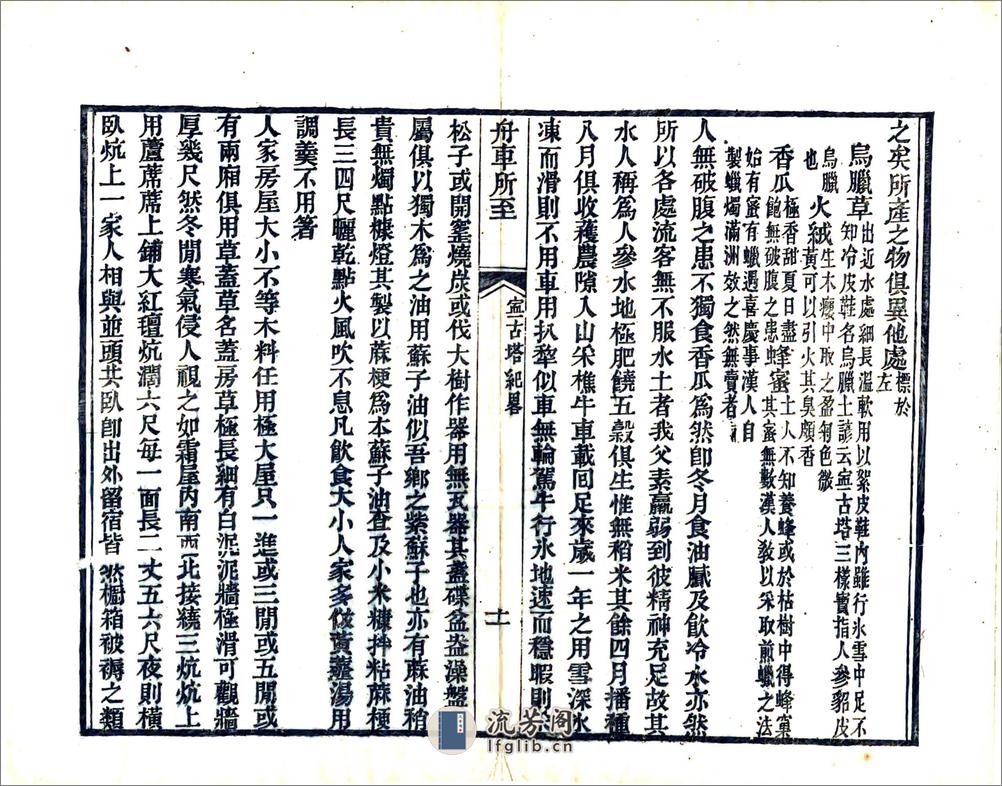 之矣所產之物俱異他處標於左
烏臘草出近水處細長溫軟用以絮皮鞋內雖行氷雪中足不
知冷皮鞋名烏臘土諺云寕古塔三樣寶指人參貂皮
烏臘
也
火絨生木癭中取之盈匊色微
黃可以引火其臭頗香
香瓜極香甜夏日盡
飽無破腹之患
蜂蜜土人不知養蜂或於枯樹中得蜂窠
其蜜無數漢人敎以采取煎蠟之法
始有蜜有蠟遇喜慶事漢人自
製蠟燭滿洲效之然無賣者
人無破腹之患不獨食香瓜爲然卽冬月食油膩及飮冷水亦然
所以各處流客無不服水土者我父素羸弱到彼精神充足故其
水人稱爲人參水地極肥饒五穀俱生惟無稻米其餘四月播種
八月俱收穫農隙入山采樵牛車載回足來歲一年之用雪深氷
凍而滑則不用車用扒犂似車無輪駕牛行氷地速而穩暇則
舟車所至
寕古塔紀畧
十
松子或開窰燒炭或伐大樹作器用無瓦器其盞碟盆盎澡盤
屬俱以獨木爲之油用蘇子油似吾鄕之紫蘇子也亦有蔴油稍
貴無燭點糠燈其製以蔴梗爲本蘇子油查及小米糠拌粘蔴梗
長三四尺曬乾點火風吹不息凡飮食大小人家多做黃虀湯用
調羹不用箸
人家房屋大小不等木料任用極大屋只一進或三閒或五閒或
有兩廂俱用草蓋草名蓋房草極長細有白泥泥牆極滑可觀牆
厚幾尺然冬閒寒氣侵人視之如霜屋內南西北接繞三炕炕上
用蘆蓆蓆上鋪大紅氊炕濶六尺每一面長二丈五六尺夜則橫
臥炕上一家人相與並頭共臥卽出外留宿皆然櫥箱被褥之類
流芳阁
lfglib.cn